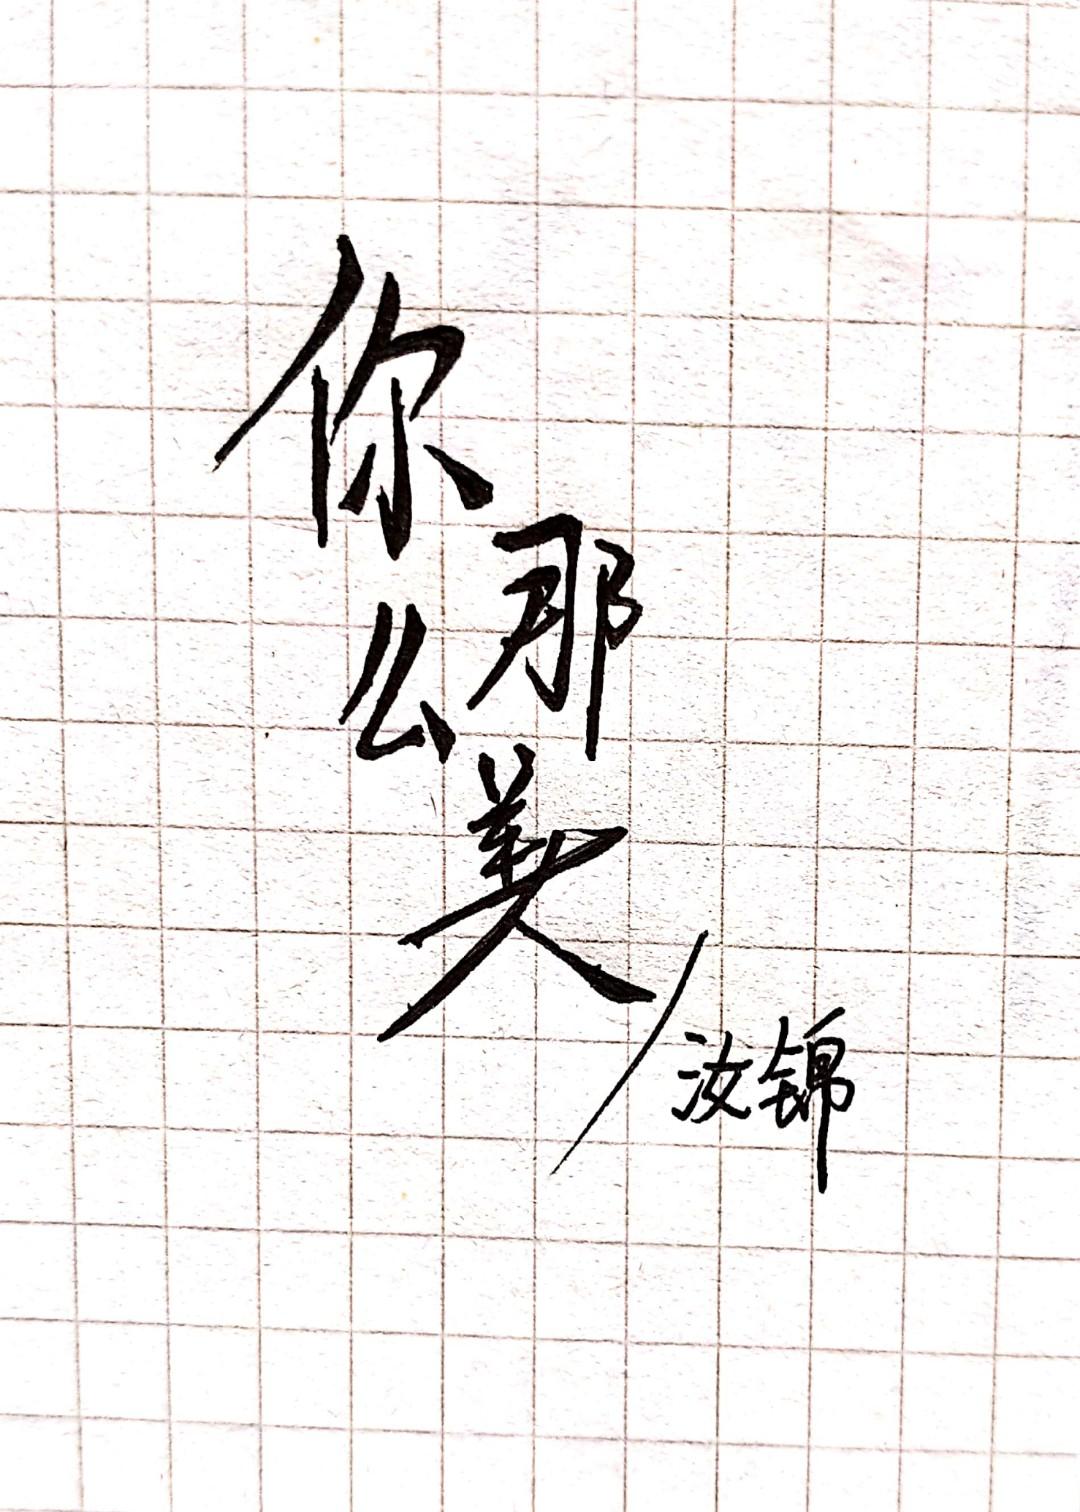 你
那
么
美
汝锦